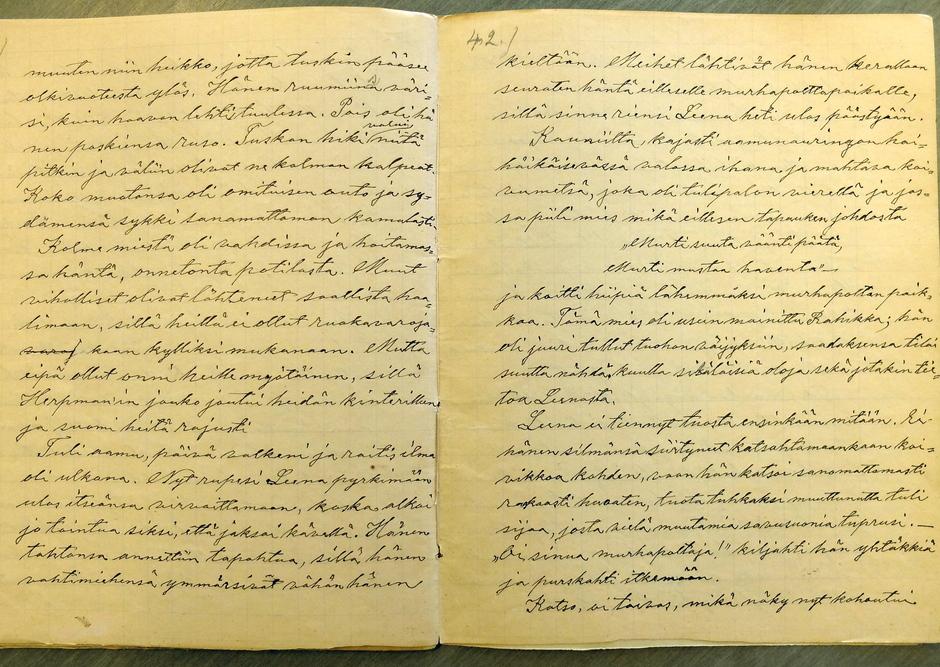 muuten niin heikko, jotta tuskin pääsee
olkivuoteesta ylös. Hänen ruumiinsa väri-
si, kuin haavan lehti tuulessa. Pois oli hä
nen poskiensa ruso. Tuskan hiki valui niitä
pitkin ja väliin olivat ne kalman kalpeat.
Koko muotonsa oli omituisen outo ja sy-
dämensä sykki sanomattoman kamalasti.
Kolme miestä oli vahdissa ja hoitamas-
sa häntä, onnetonta potilasta. Muut
viholliset olivat lähteneet saallista haa-
limaan, sillä heillä ei ollut ruokavaroja-
varoj kaan kylliksi mukanaan. Mutta
eipä ollut onni heille myötäinen, sillä
Herpman'in jouko joutui heidän kinterillens
ja suomi heitä rajusti
Tuli aamu, päivä valkeni ja raitis ilma
oli ulkona. Nyt rupesi Leena pyrkimään
ulos itseänsä virvoittamaan, koska alkoi
jo tointua siksi, että jaksoi kävellä. Hänen
tahtonsa annettiin tapahtua, sillä hänen
vahtimiehensä ymmärsivät vähän hänen
42./
kieltään. Miehet lähtivät hänen kerallaan
seuraten häntä eilleselle murhapolttopaikalle,
sillä sinne riensi Leena heti ulos päästyään.
Kauniilta, kajasti aamuauringon hoi-
häikäisevässä valossa ihana ja mahtava koi-
vumetsä, joka oli tulipalon vierellä ja jos-
sa piili mies mikä eillesen tapauksen johdosta
„Murti suuta väänti päätä,
Murti mustaa haventa"—
ja koitti hiipiä lähemmäksi murhapolton paik-
kaa. Tämä mies oli usein mainittu Rahikka; hän
oli juuri tullut tuohon väijyksiin, saadaksensa tilai
suutta nähdä, kuulla sikäläisiä oloja sekä jotakin tie-
toa Leenasta.
Leena ei tiennyt tuosta ensinkään mitään. Ei-
hänen silmänsä siirtyneet katsahtamaankaan koi-
vikkoa kohden, vaan hän katsoi sanomattomasti
raskaasti huoaten, tuota tuhkaksi muuttunutta tuli
sijaa, josta vielä muutamia savusuonia tuprusi. —
„Oi sinua murhapolttaja!" kiljahti hän yhtäkkiä
ja purskahti itkemään.
Katso, oi taivas, mikä näky nyt kohoutui